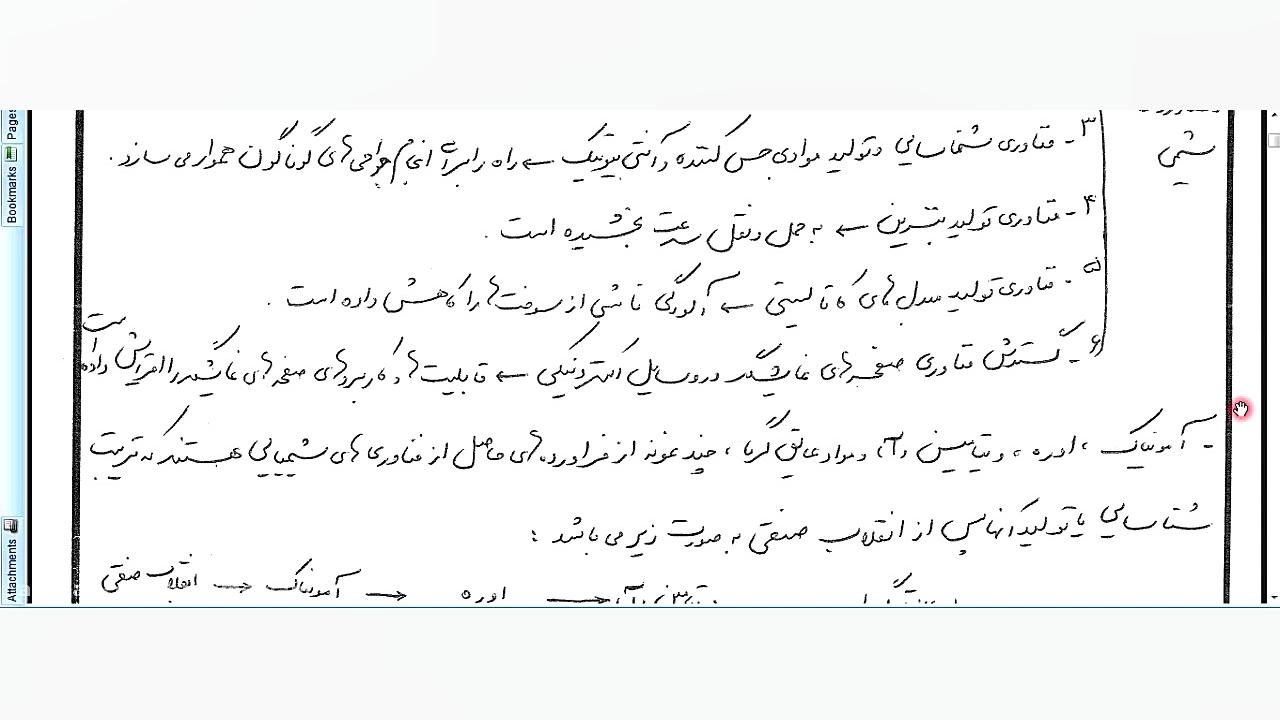 شیمی
۳- فناوری شناسایی و تولید موادی جس کننده و آنتی بیوتیک ← راه را برای انجام جراحی های گوناگون هموار می سازد.
۴- فناوری تولید بنزین ← به حمل و نقل سرعت بخشیده است.
۵- فناوری تولید مبدل های کاتالیستی ← آلودگی ناشی از سوخت ها را کاهش داده است.
۶- گسترش فناوری صفحه های نمایشگر در وسایل الکترونیکی ← قابلیت ها و کاربردهای صفحه های نمایشگر را افزایش داده است
- آمونیاک، اوره، ویتامین «آ» و مواد عایق گرما، چند نمونه از فراورده های حاصل از فناوری های شیمیایی هستند که ترتیب
شناسایی یا تولید آنها پس از انقلاب صنعتی به صورت زیر می باشد :
انقلاب صنعتی → آمونیاک → اوره →
Pages
Bookmarks
Attachments